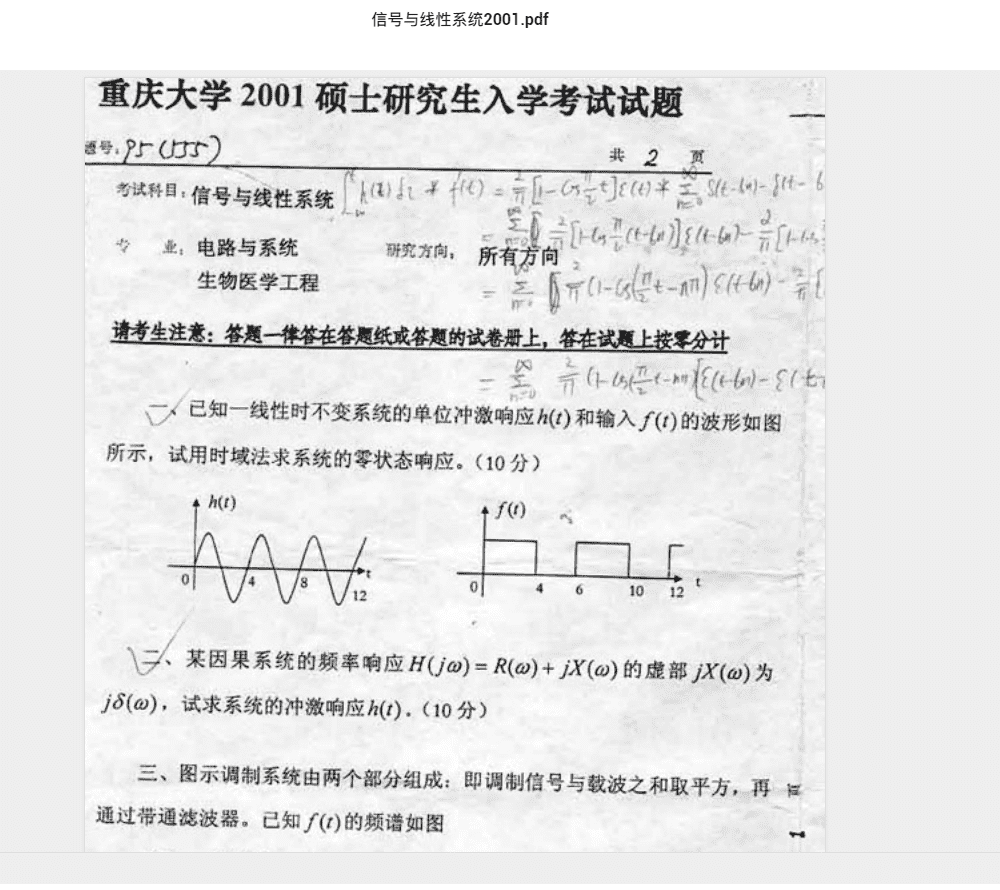 信号与线性系统2001.pdf
重庆大学 2001 硕士研究生入学考试试题
题号: 95 (555)
共 2 页
考试科目: 信号与线性系统
专 业: 电路与系统
研究方向: 所有方向
生物医学工程
请考生注意：答题一律答在答题纸或答题的试卷册上，答在试题上按零分计
一、已知一线性时不变系统的单位冲激响应h(t)和输入f(t)的波形如图
所示，试用时域法求系统的零状态响应。（10分）
h(t)
0 4 8 12 t
f(t)
0 4 6 10 12 t
二、某因果系统的频率响应H(jω)= R(ω)+ jX(ω)的虚部jX(ω)为
jδ(ω)，试求系统的冲激响应h(t)。（10分）
三、图示调制系统由两个部分组成：即调制信号与载波之和取平方，再
通过带通滤波器。已知f(t)的频谱如图
页
1